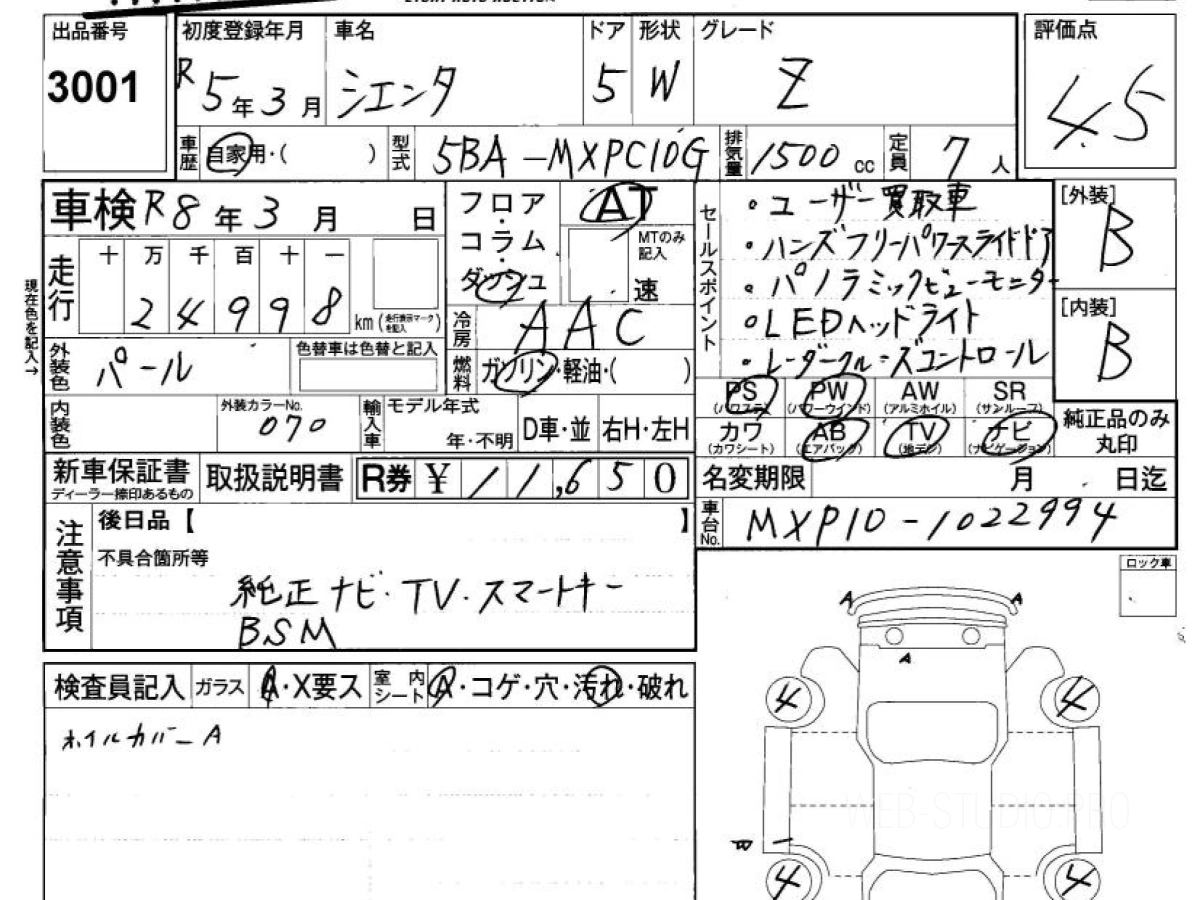 出品番号 初度登録年月 車名 ドア 形状 グレード 評価点
3001 R5年3月 シエンタ 5 W Z 4.5
車歴 自家用・( ) 型式 5BA-MXPC10G 排気量 1500 cc 定員 7人
車検 R8年3月 日
フロア・コラム・ダッシュ AT
MTのみ記入 速
セールスポイント
・ユーザー買取車
・ハンズフリーパワースライドドア
・パノラミックビューモニター
・LEDヘッドライト
・レーダークルーズコントロール
[外装] B
[内装] B
現在色を記入→
走行 十万千百十一
24998 km (走行表示マークを記入)
冷房 AAC
外装色 パール 色替車は色替と記入
燃料 ガソリン・軽油・( )
内装色 外装カラーNo. 070
輸入車 モデル年式 年・不明 D車・並 右H・左H
PS (パワステ) PW (パワーウインド) AW (アルミホイル) SR (サンルーフ)
カワ (カワシート) AB (エアバッグ) TV (地デジ) ナビ (ナビゲーション)
純正品のみ丸印
新車保証書 ディーラー捺印あるもの 取扱説明書 R券 ¥ 11,650
名変期限 月 日迄
車台No. MXP10-1022994
注意事項 後日品【 】
不具合箇所等
純正ナビ・TV・スマートキー
BSM
ロック車
検査員記入 ガラス A・X要ス 室内シート A・コゲ・穴・汚れ・破れ
ホイルカバーA
A A
A
4 4
WEB-STUDIO.PRO
W
4 4